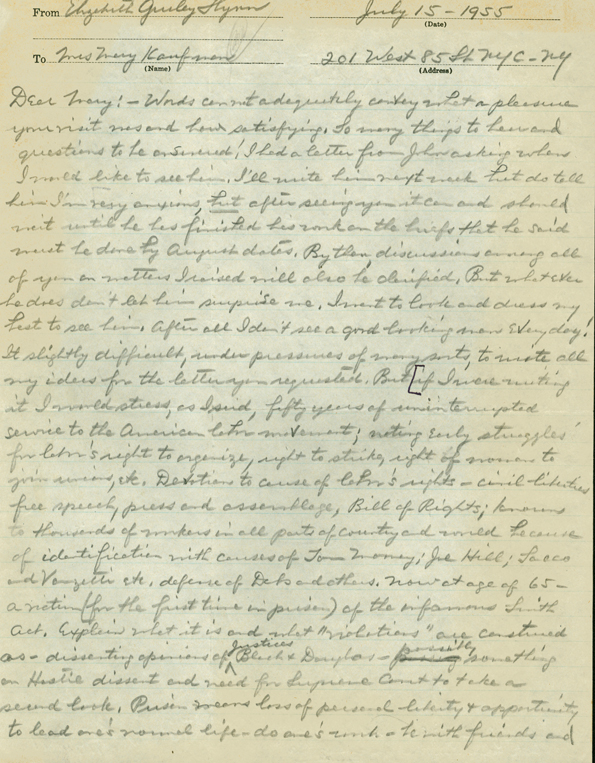 From Elizabeth Gurley Flynn July 15 - 1955
(Date)
To Mrs Mary Kaufman 201 West 85 St NYC - NY
(Name) (Address)
Dear Mary! - Words cannot adequately convey what a pleasure
your visit was and how satisfying. So many things to hear and
questions to be answered! I had a letter from John asking when
I would like to see him. I'll write him next week but do tell
him I'm very anxious, but after seeing you it can and should
wait until he has finished his work on the briefs that he said
must be done by August dates. By then discussions among all
of you on matters I raised will also be clarified. But what ever
he does don't let him surprise me. I want to look and dress my
best to see him. After all I don't see a good looking man every day!
It slightly difficult, under pressures of many sorts, to wrote all
my ideas for the letter you requested. But [if I were writing
it I would stress, as I said, fifty years of uninterrupted
service to the American labor movement; noting early struggles
for labor's right to organize, right to strike, right of women to
join unions, etc. Devotion to cause of labor's rights - civil liberties
free speech, press and assemblage, Bill of Rights; known
to thousands of workers in all parts of country and world because
of identification with causes of Tom Mooney; Joe Hill; Sacco
and Vanzetti etc. defense of Debs and others. Now at age of 65 -
a victim (for the first time in prison) of the infamous Smith
Act. Explain what it is and what "violations" are construed
as - dissenting opinions of Justices Black & Douglas - possibly something
on Hastie dissent and need for Supreme Court to take a
second look. Prison means loss of personal liberty & opportunity
to lead one's normal life - do one's work - be with friends and